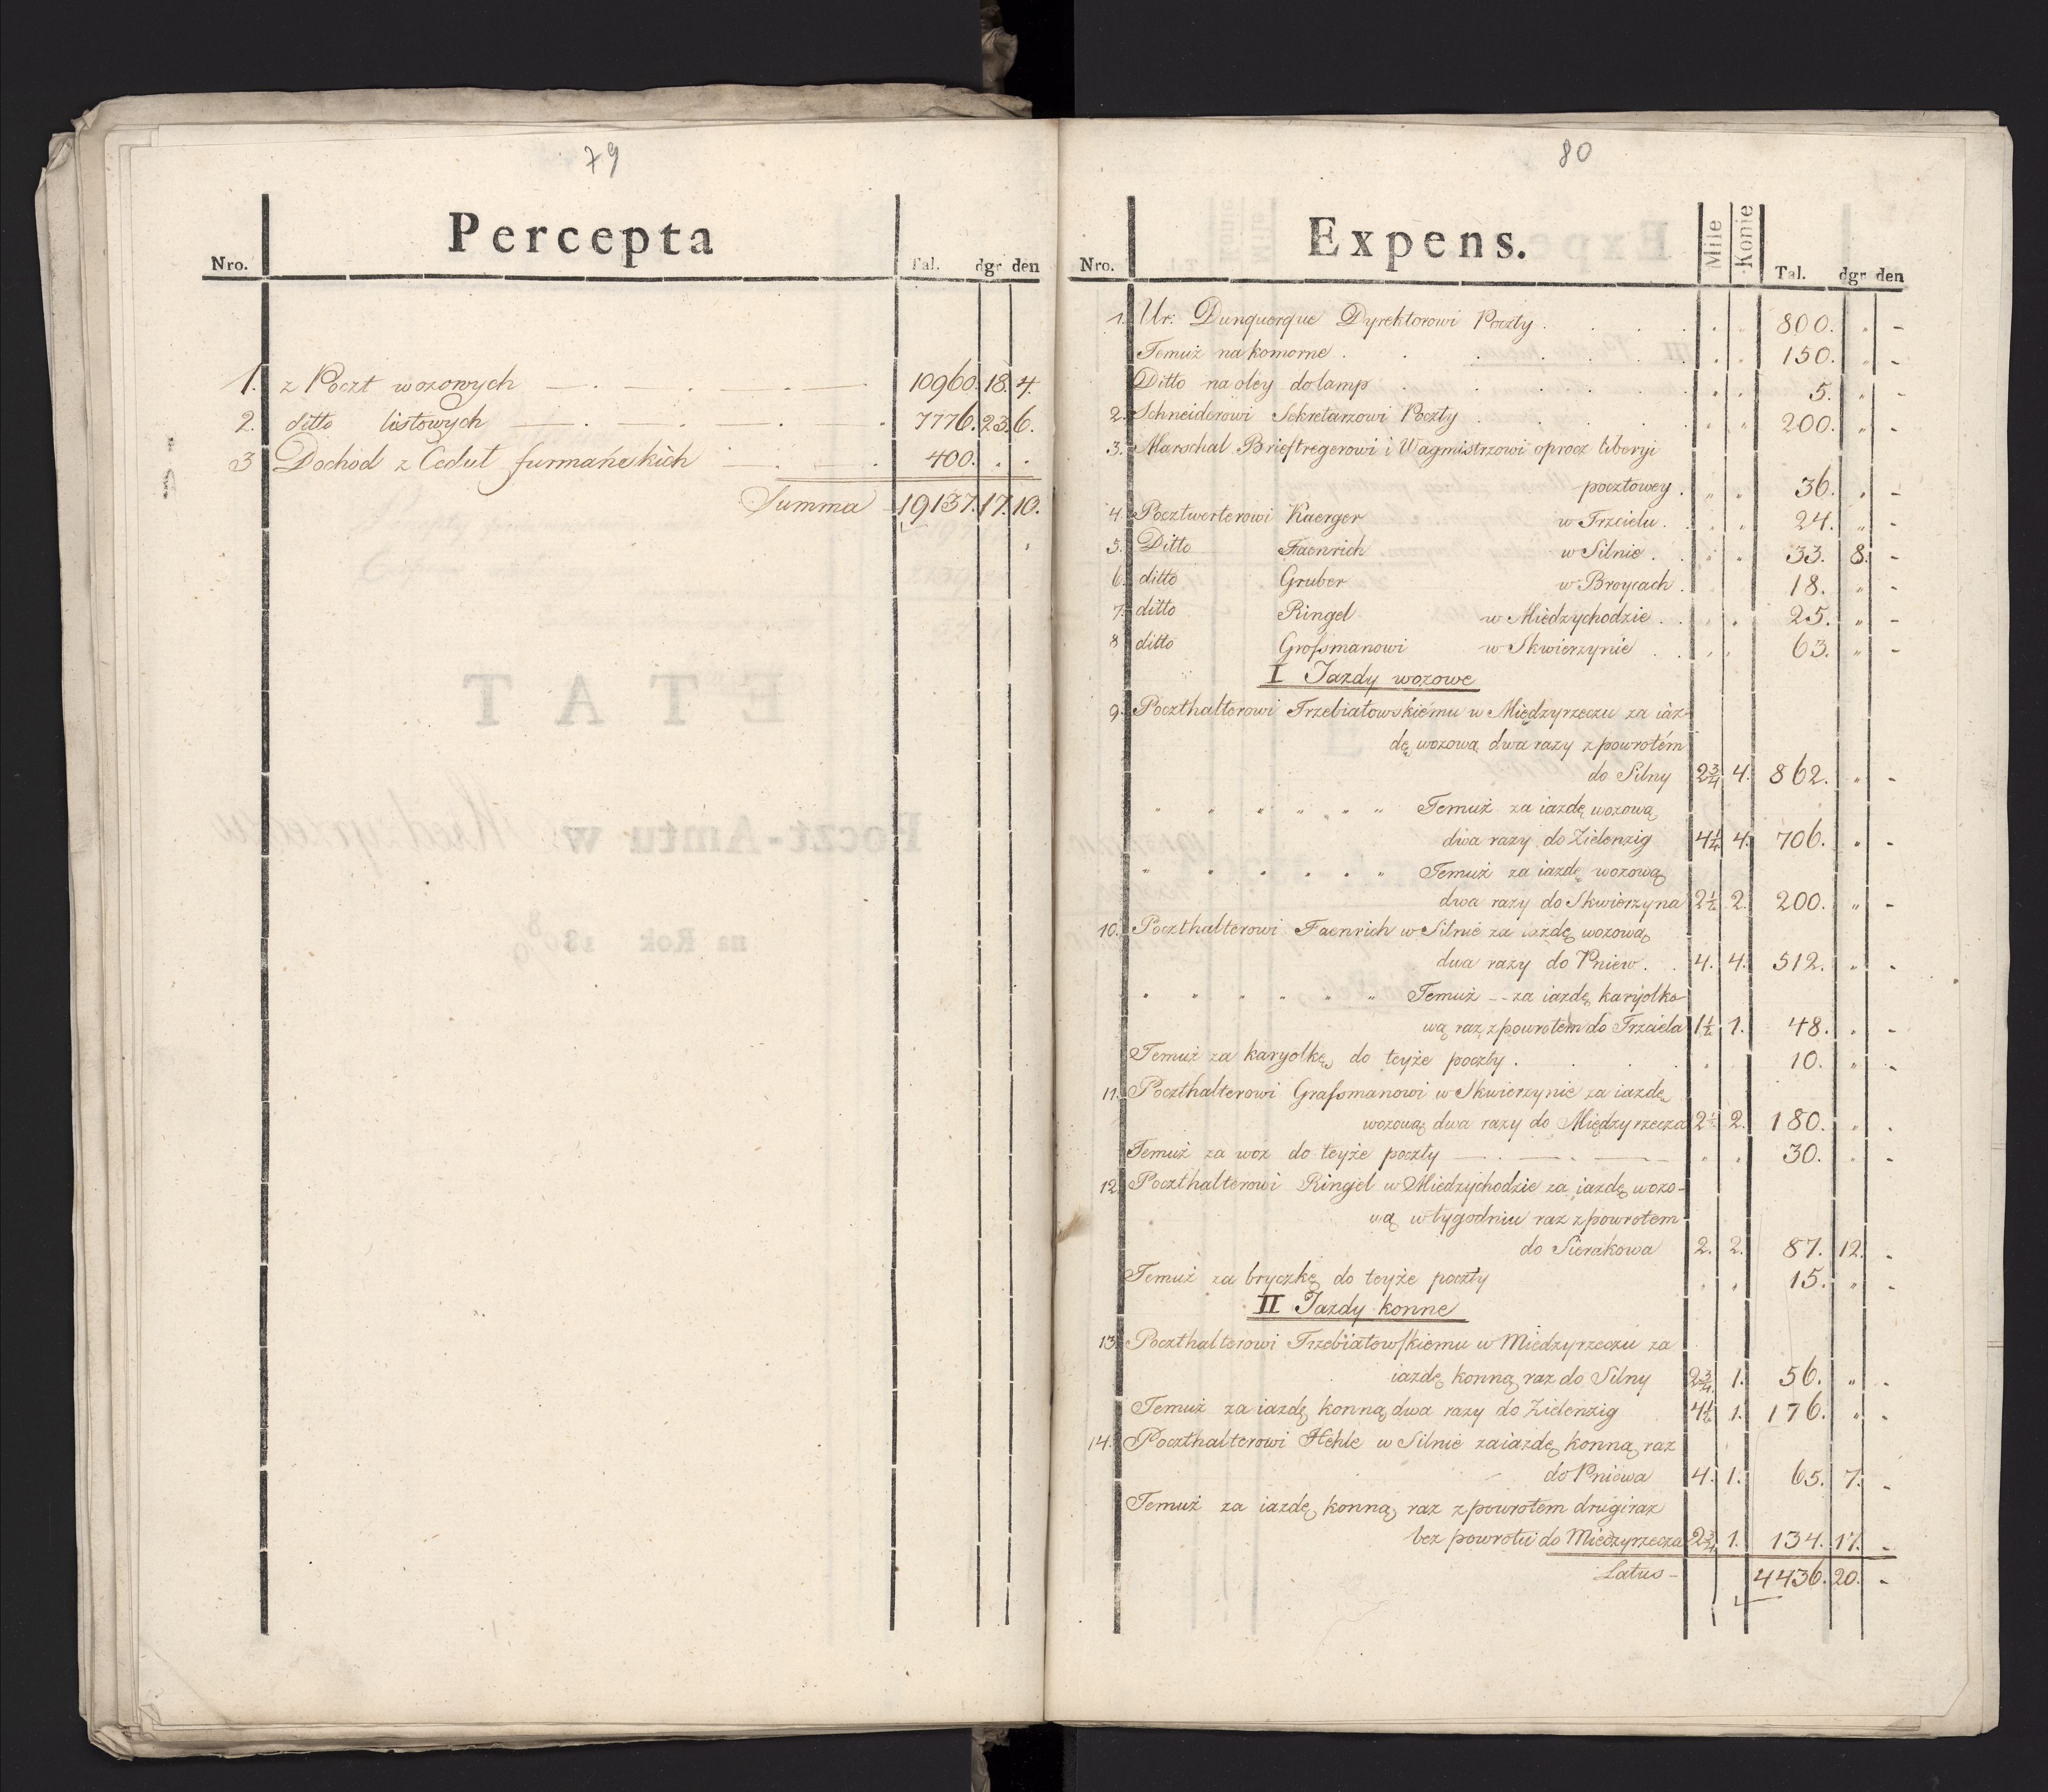 79
Percepta
Nro. Tal. dgr den
1. z Poczt wozowych 10960. 18. 4.
2. ditto listowych 7776. 23. 6.
3 Dochod z Cedul furmańskich 400. . .
Summa 19137. 17. 10.
80
Expens.
Nro. Mile Konie Tal. dgr den
1. Ur: Dunquerque Dyrektorowi Poczty . . . 800. " -
Temuż na komorne . . . 150. " -
Ditto na oley do lamp . . . 5. " -
2. Schneiderowi Sekretarzowi Poczty . . . 200. " -
3. Marschal Brieftregerowi i Wagmistrzowi oprocz liberyi
pocztowey . " " 36. " -
4. Pocztwerterowi Kaerger w Trzcielu . " " 24. " -
5. Ditto Faenrich w Silnie . " " 33. 8. -
6. ditto Gruber w Broycach . 18. " -
7. ditto Ringel w Miedzychodzie . " " 25. " -
8 ditto Grofsmanowi w Skwierzynie . " " 63. " -
I Jazdy wozowe
9. Poczthalterowi Trzebiatowskiému w Międzyrzeczu za iaz-
dę wozową dwa razy z powrotém
do Silny 2¾ 4. 862. " -
" " " " " " Temuż za iazdę wozową
dwa razy do Zielenzig 4½ 4. 706. " -
" " " " " " Temuż za iazdę wozową
dwa razy do Skwierzyna 2½ 2. 200. " -
10. Poczthalterowi Faenrich w Silnie za iazdę wozową
dwa razy do Pniew . . 4. 4. 512. " -
" " " " " " Temuż -- za iazdę karyolko-
wą raz z powrotem do Trzciela 1½ 1. 48. " -
Temuż za karyolkę do teyże poczty . . . 10. " -
11. Poczthalterowi Grafsmanowi w Skwierzynie za iazdę
wozową dwa razy do Międzyrzecza 2½ 2. 180. " .
Temuż za woz do teyże poczty " " 30. " -
12. Poczthalterowi Ringel w Miedzychodzie za iazdę wozo-
wą w tygodniu raz z powrotem
do Sierakowa 2. 2. 87. 12. -
Temuż za bryczkę do teyże poczty " " 15. " -
II Jazdy konne
13. Poczthalterowi Trzebiatowskiemu w Miedzyrzeczu za
iazdę konną raz do Silny 2¾ 1. 56. " -
Temuż za iazdę konną dwa razy do Zielenzig 4½ 1. 176. " -
14. Poczthalterowi Hehle w Silnie za iazdę konną raz
do Pniewa 4. 1. 65. 7. -
Temuż za iazdę konną raz z powrotem drugi raz
bez powrotu do Miedzyrzecza 2¾ 1. 134. 17. -
Latus - 4436. 20. -